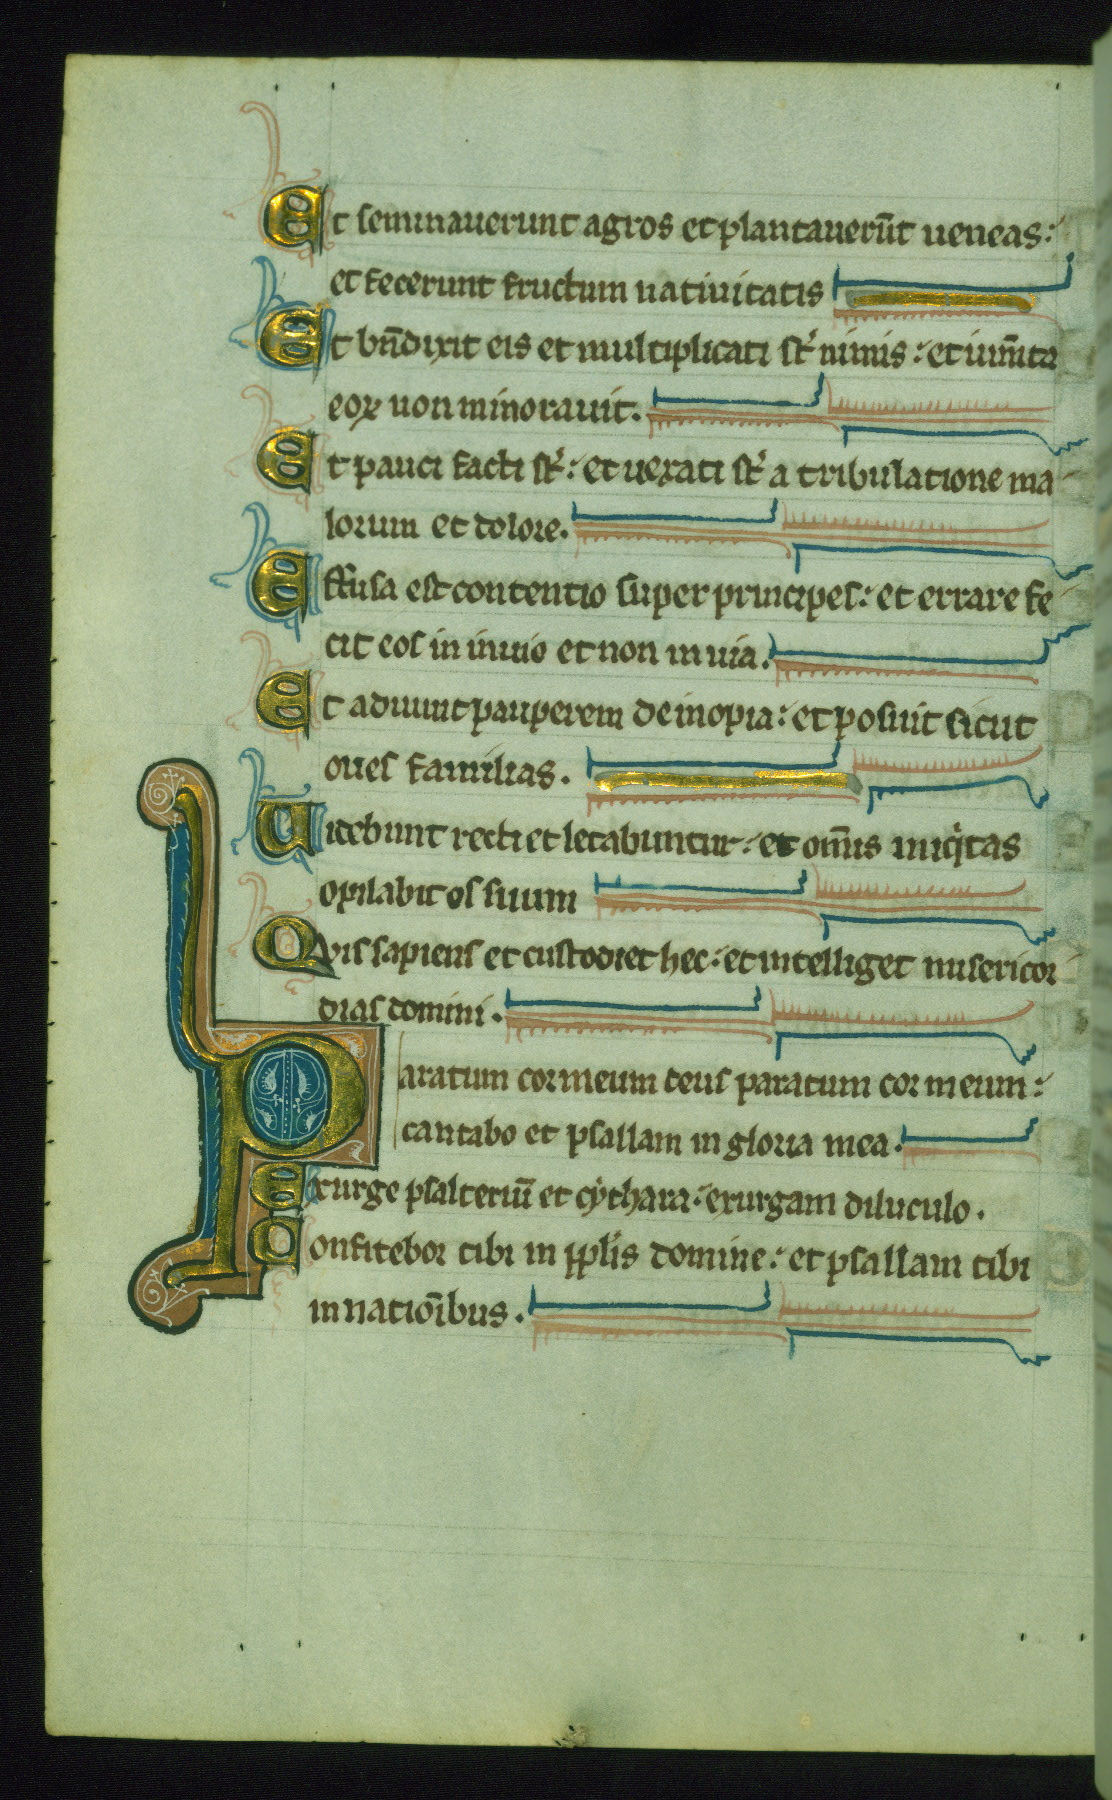 Et seminauerunt agros et plantauerūt ueneas:
et fecerunt fructum natiuitatis
Et bn̄dixit eis et multiplicati st̉ nimis: et ium̄ta
eoꝝ non minorauit.
Et pauci facti st̉: et uexati st̉ a tribulatione ma
lorum et dolore.
Effusa est contentio super principes: et errare fe
cit eos in inuio et non in uia.
Et adiuuit pauperem de inopia: et posuit sicut
oues familias.
Uidebunt recti et letabuntur: et om̄is iniq̇tas
opilabit os suum
Quis sapiens et custodiet hec: et intelliget misericor
dias domini.
Paratum cor meum deus paratum cor meum:
cantabo et psallam in gloria mea.
Exurge psalteriū et cythara: exurgam diluculo.
Confitebor tibi in pp̄lis domine: et psallam tibi
in natiōibus.